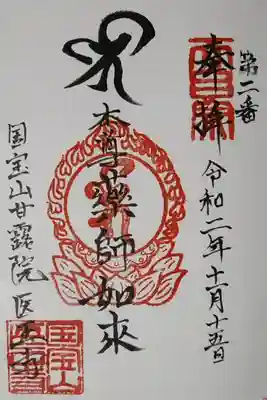 第二番
奉拝
令和二年十一月十五日
本尊薬師如来
国宝山甘露院医王寺